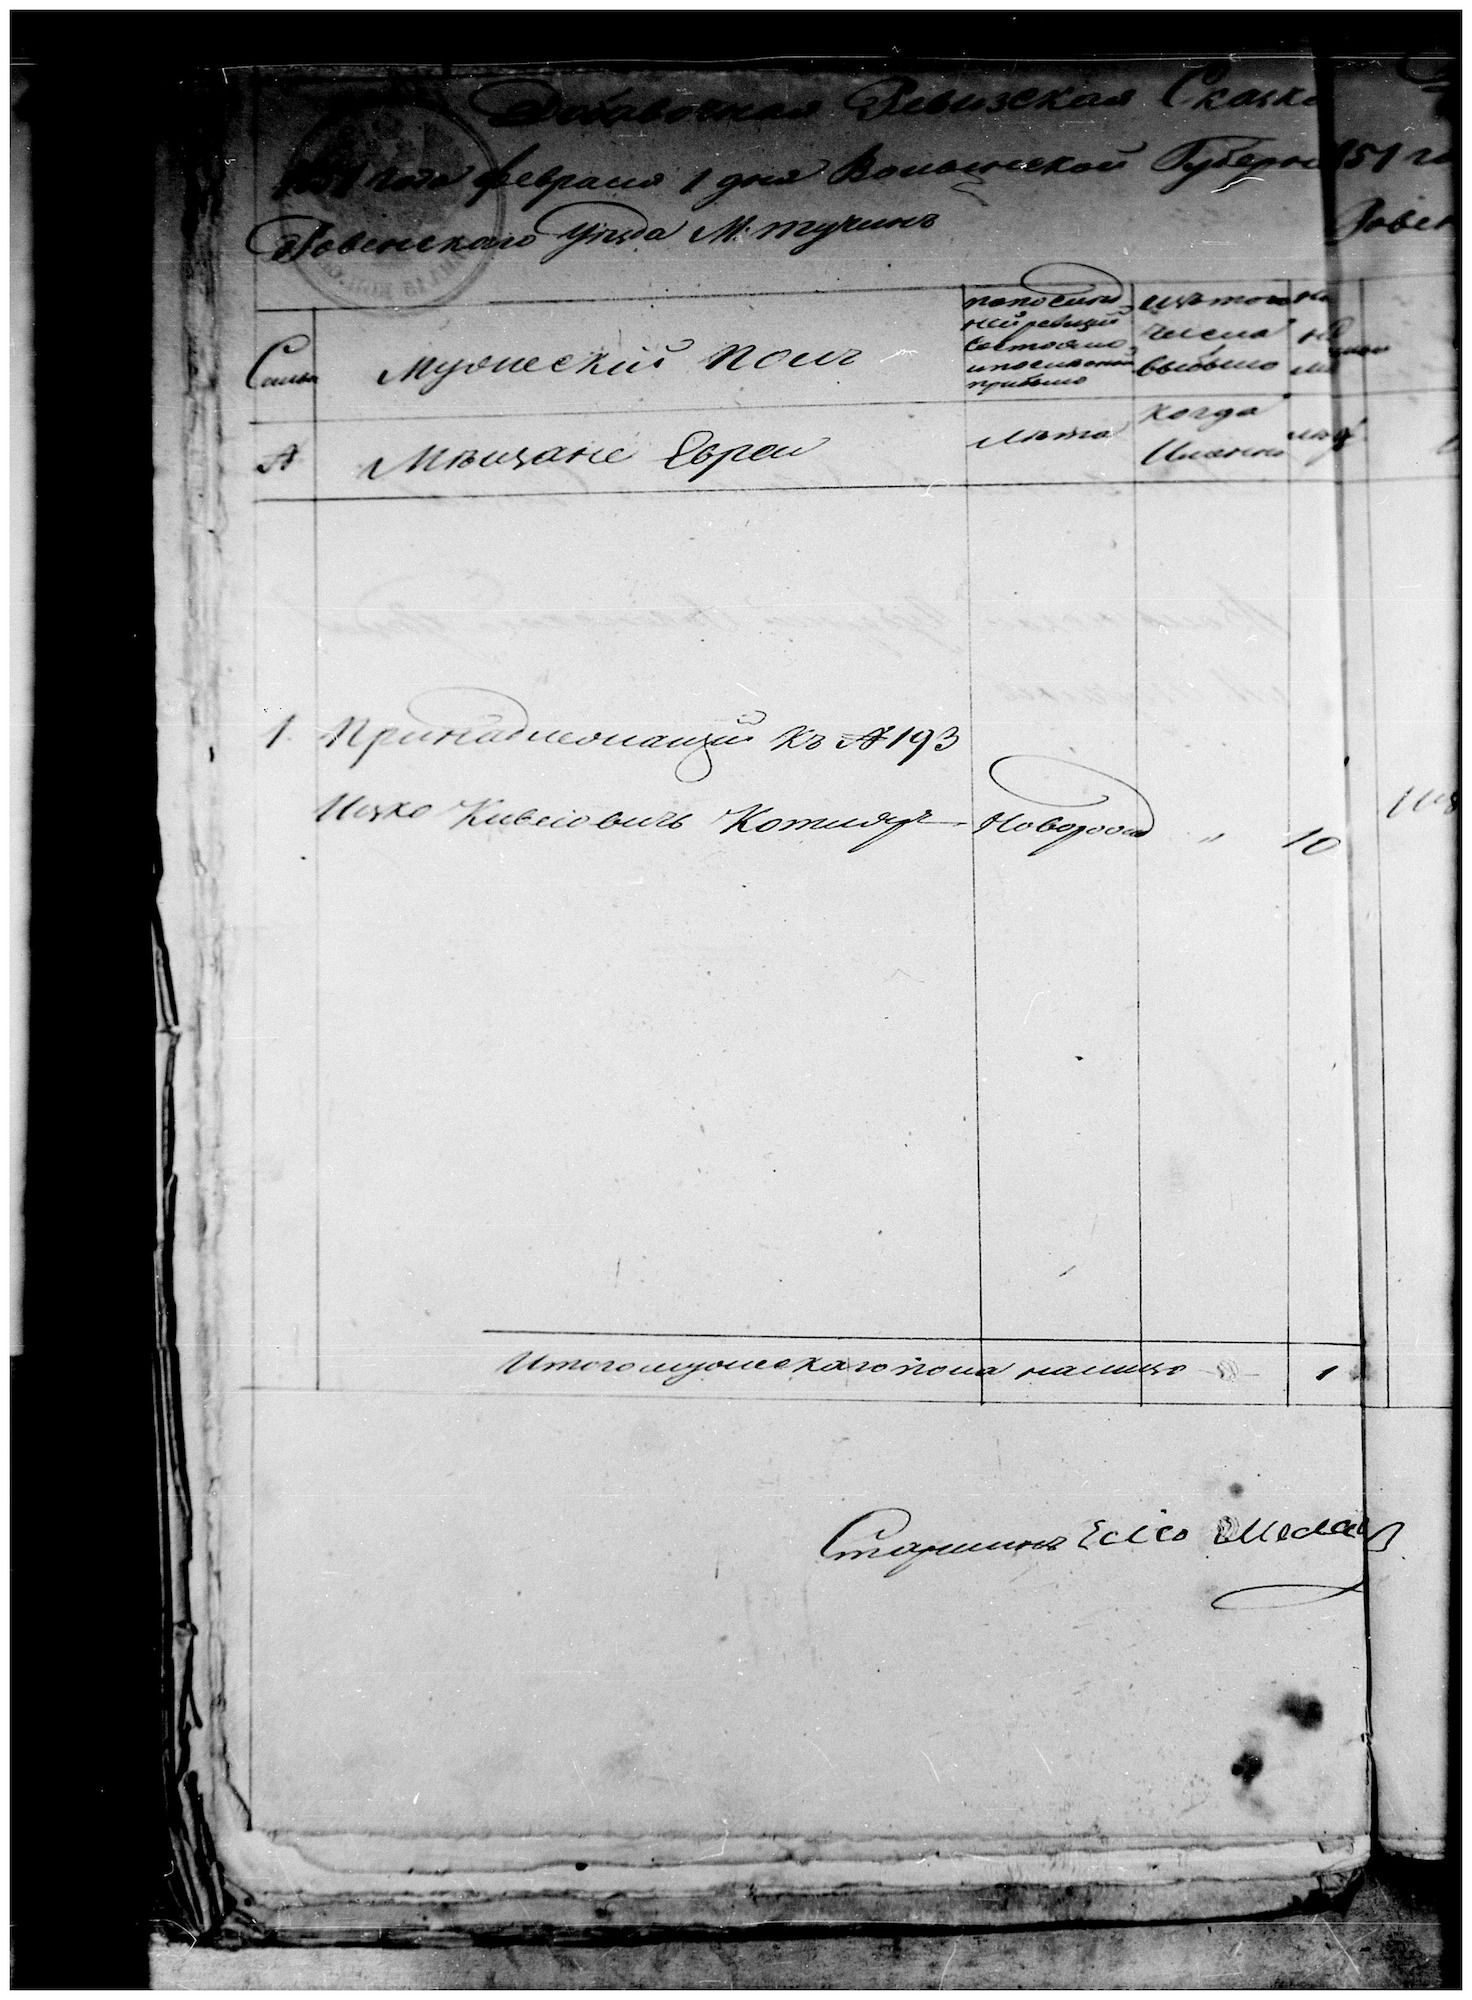 Добавочная Ревизская Сказка
1851 года февраля 1 дня Волынской Губерніи
Ровенскаго Уѣзда М. Тучинъ
Семьи
Мужескій Полъ
По послѣдней ревизіи состояло и послѣ оной прибыло
Изъ того числа выбыло
№
Мѣщане Евреи
Лѣта
Когда Именно
1. Принадлежащій къ № 193
Ицко Кивіовичъ Котляръ Новорож " 10
Итого мужескаго пола налицо 1
Старшина